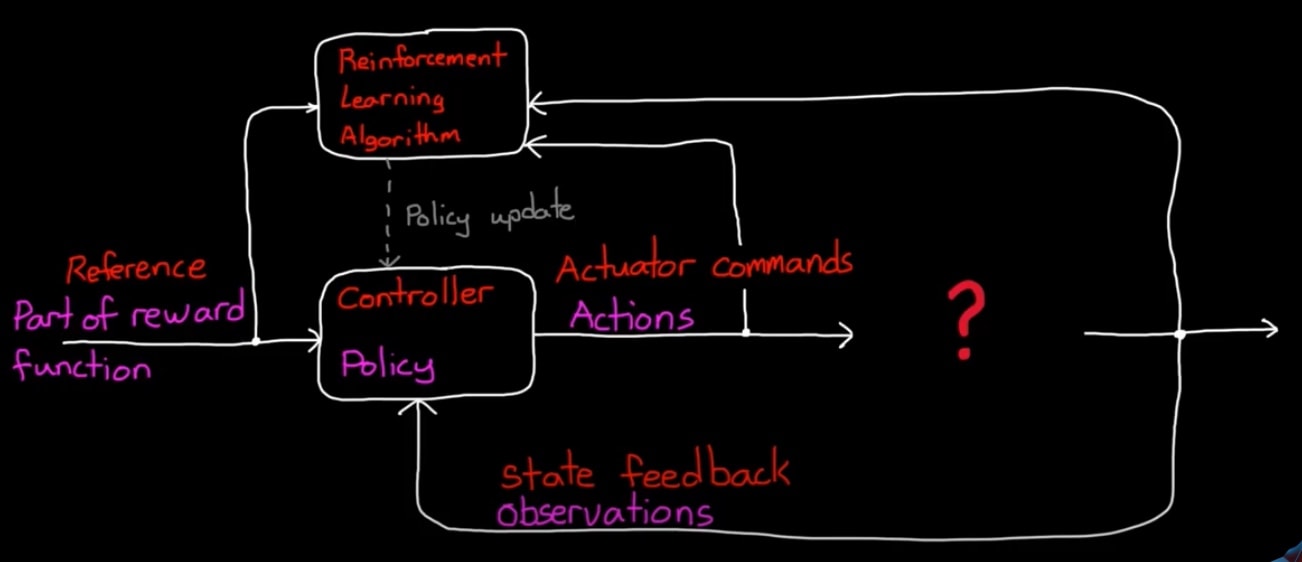 Reinforcement
Learning
Algorithm
Policy update
Reference
Part of reward
function
Controller
Policy
Actuator commands
Actions
?
State feedback
Observations